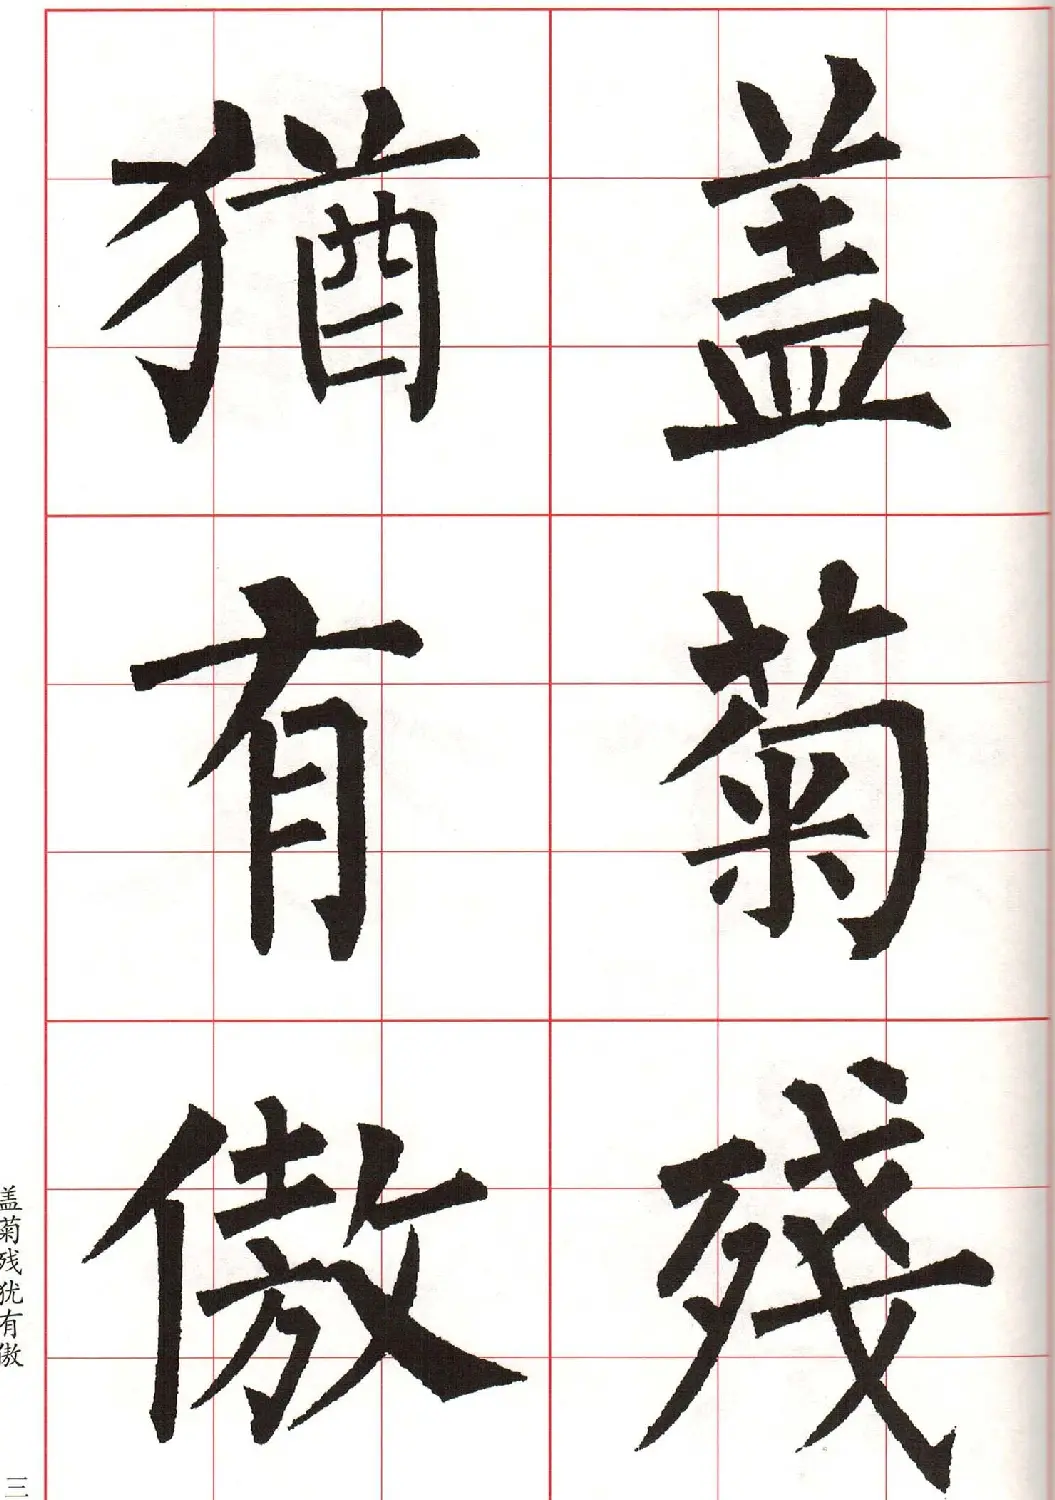 盖菊殘
猶有傲
盖菊残犹有傲
三